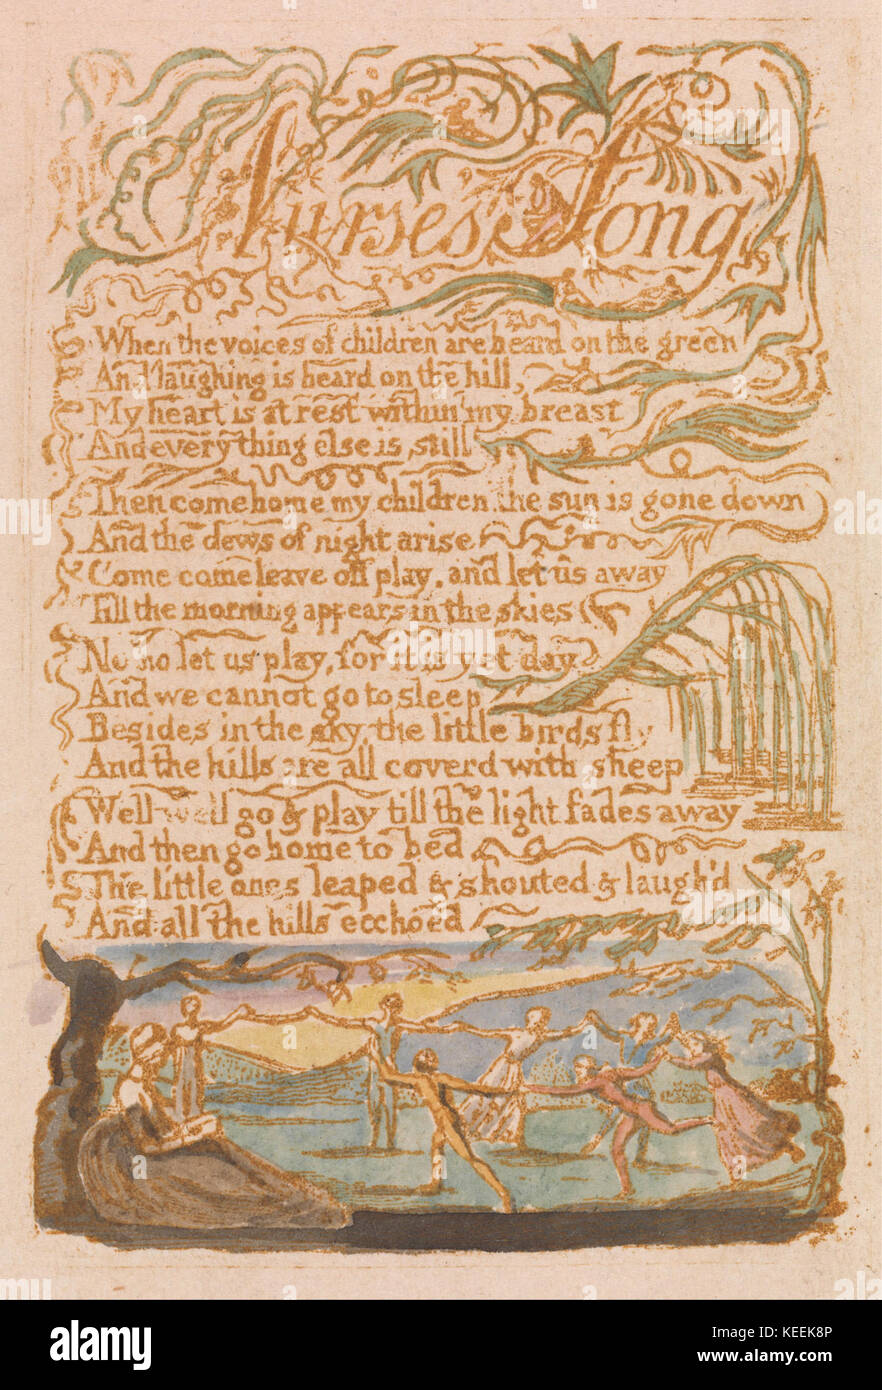 Nurse's Song
When the voices of children are heard on the green
And laughing is heard on the hill,
My heart is at rest within my breast
And every thing else is still
Then come home my children the sun is gone down
And the dews of night arise
Come come leave off play, and let us away
Till the morning appears in the skies
No no let us play, for it is yet day
And we cannot go to sleep
Besides in the sky, the little birds fly
And the hills are all coverd with sheep
Well well go & play till the light fades away
And then go home to bed
The little ones leaped & shouted & laugh'd
And all the hills ecchoed
a
alamy
alamy
Image ID: KEEK8P
www.alamy.com